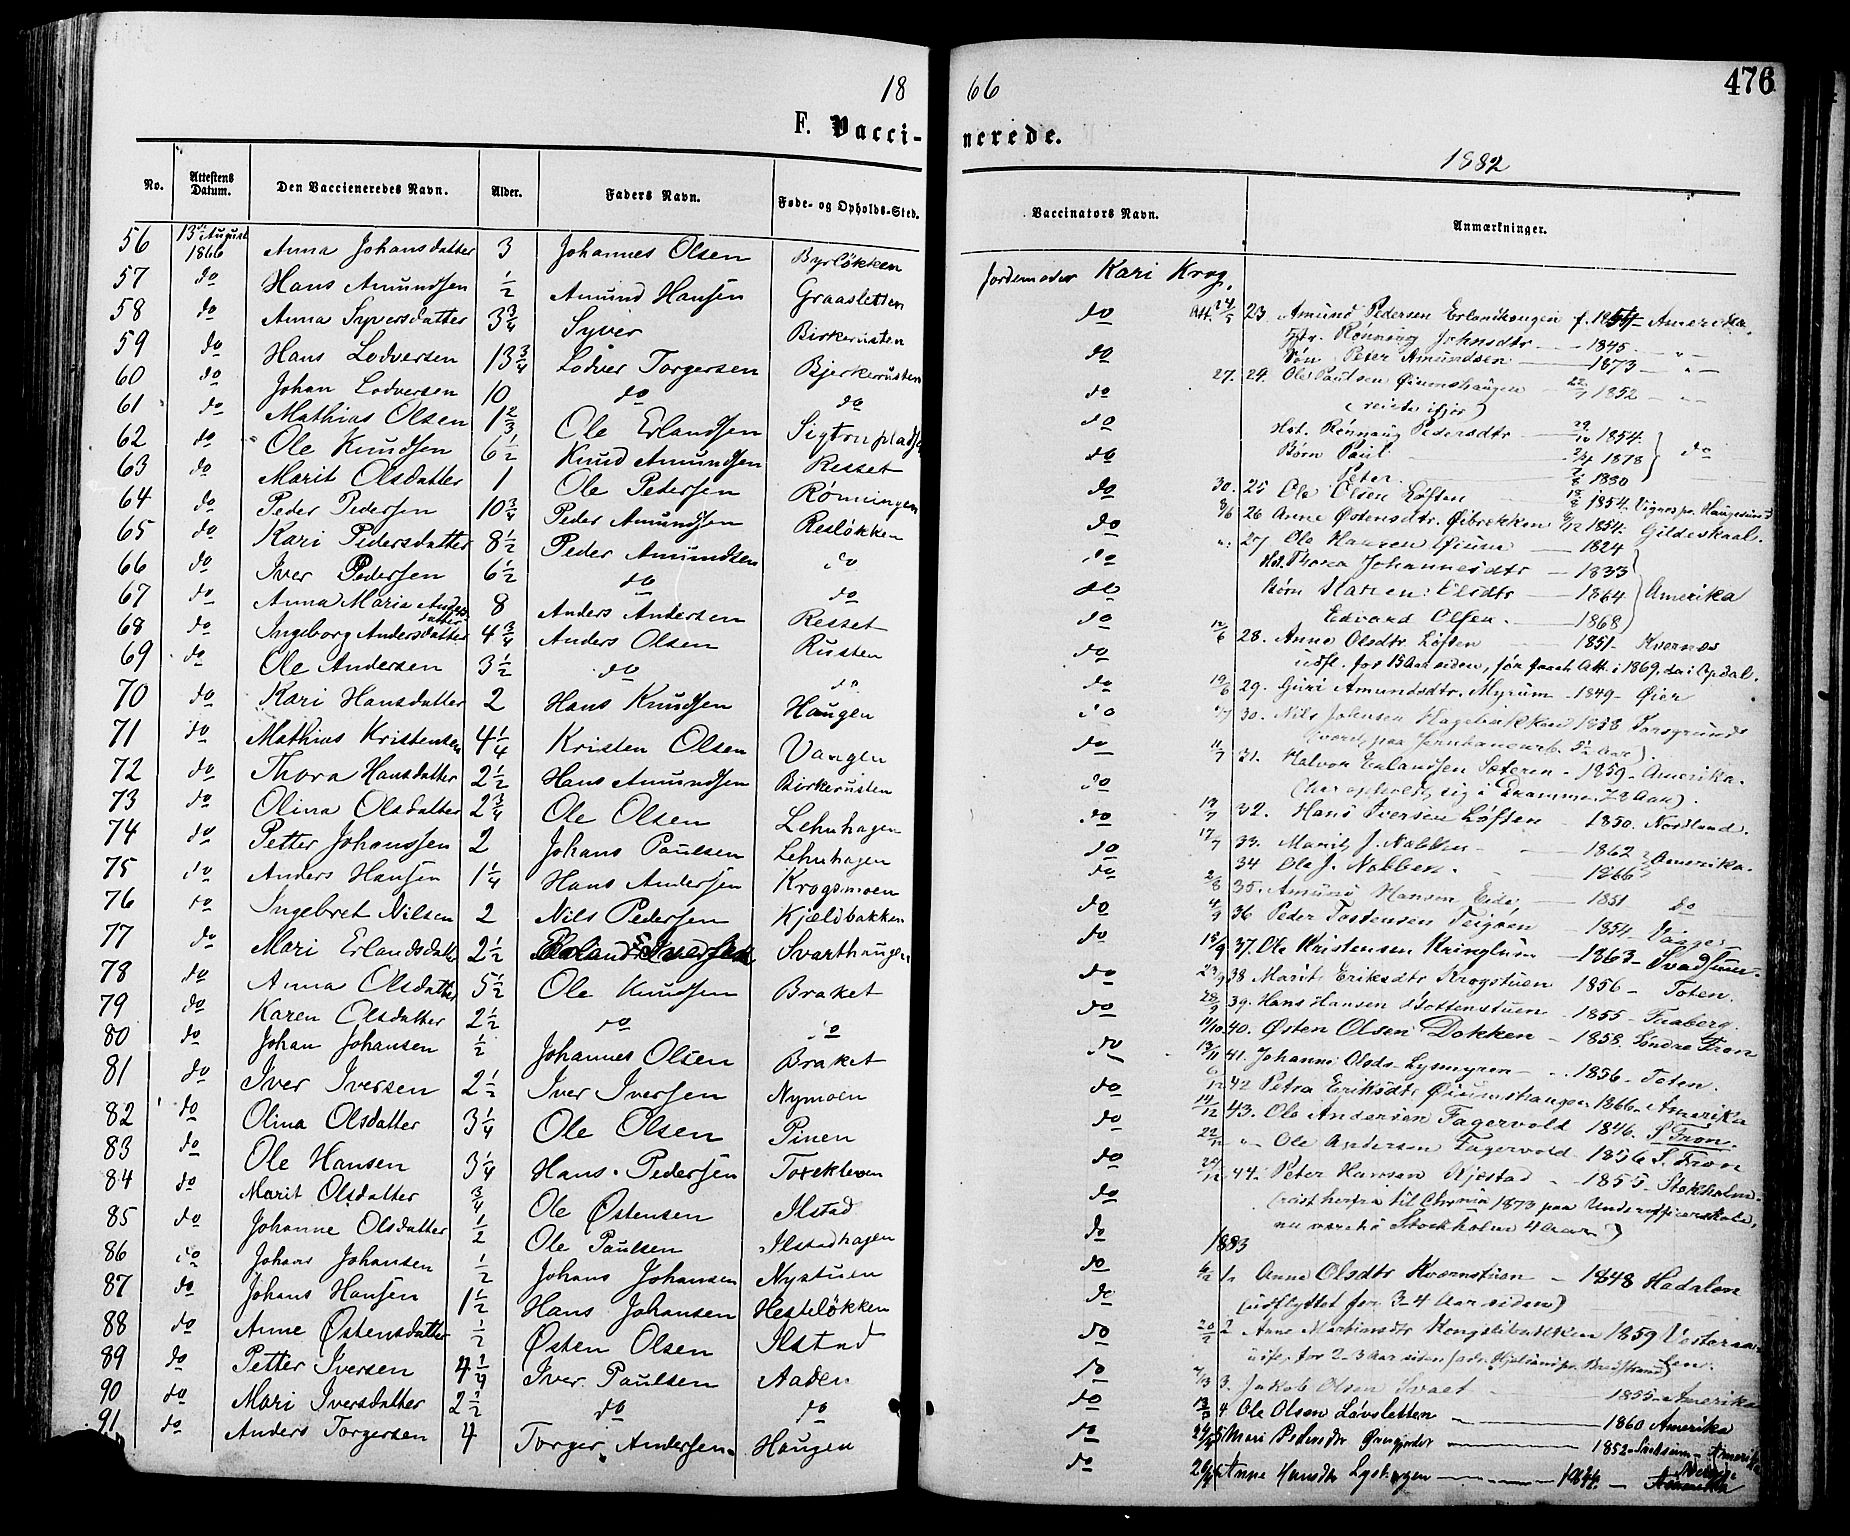 18 66 476
F. Vaccinerede.
1882
No. Attestens Datum. Den Vaccieneredes Navn. Alder. Faders Navn. Føde- og Opholds-Sted. Vaccinators Navn. Anmærkninger.
56 13de August 1866 Anna Johansdatter 3 Johannes Olsen Byrløkken Jordemoder Kari Krog.
57 do Hans Amundsen 1/2 Amund Hansen Graasletten do
58 do Anna Syversdatter 3 3/4 Syver Birkerusten do
59 do Hans Lodversen 13 3/4 Lodver Torgersen Bjerkerusten do
60 do Johan Lodversen 10 do do do
61 do Mathias Olsen 1 2/3 Ole Erlandsen do
62 do Ole Knudsen 6 1/2 Knud Amundsen Resset do
63 do Marit Olsdatter 1 Ole Pedersen Rønningen do
64 do Peder Pedersen 10 3/4 Peder Amundsen Resløkken do
65 do Kari Pedersdatter 8 1/2 Peder Amundsen do do
66 do Iver Pedersen 6 1/2 do do do
67 do Anna Maria Andersdatter 8 Anders Andersen Resset do
68 do Ingeborg Andersdatter 4 3/4 Anders Olsen Rusten do
69 do Ole Andersen 3 1/2 do do do
70 do Kari Hansdatter 2 Hans Knudsen Haugen do
71 do Mathias Kristensen 4 1/4 Kristen Olsen Vangen do
72 do Thora Hansdatter 2 1/2 Hans Amundsen Birkerusten do
73 do Olina Olsdatter 2 3/4 Ole Olsen Lehnhagen do
74 do Petter Johanssen 2 Johans Paulsen Lehnhagen do
75 do Anders Hansen 1 1/4 Hans Andersen Krogsmoen do
76 do Ingebret Nilsen 2 Nils Pedersen Kjældbakken do
77 do Mari Erlandsdatter 2 1/2 Erland Iversen Svarthaugen do
78 do Anna Olsdatter 5 1/2 Ole Knudsen Braket do
79 do Karen Olsdatter 2 1/2 do do do
80 do Johan Johansen 1/2 Johannes Olsen Braket do
81 do Iver Iversen 2 1/2 Iver Iversen Nymoen do
82 do Olina Olsdatter 3 1/4 Ole Olsen Pinen do
83 do Ole Hansen 3 1/4 Hans Pedersen do
84 do Marit Olsdatter 3/4 Ole Østensen Ilstad do
85 do Johanne Olsdatter 1/2 Ole Paulsen Ilstadhagen do
86 do Johans Johansen 1/2 Johans Johansen Nystuen do
87 do Johans Hansen 1 1/2 Hans Johansen Hesteløkken do
88 do Anne Østensdatter 1/2 Østen Olsen Ilstad do
89 do Petter Iversen 4 1/4 Iver Paulsen Aaden do
90 do Mari Iversdatter 2 1/2 do do do
91 do Anders Torgersen 4 Torger Andersen Haugen do
Att. 24/5 23. Amund Pedersen Erlandhaugen Amerika.
Rønnaug Johnsdtr 1845 - " -
Søn Peter Amundsen 1873 - " -
27. 24. Ole Paulsen Øiumshaugen 22/7 1852 - " -
(reiste ifjor)
Hst. Rønnaug Pedersdtr 1854.
Børn Paul 1878 do
Peter 1880
30. 25 Ole Olsen Løften 1854. Vignes pr. Haugesund
9/6 26 Anne Østensdtr. Øibrekken 1854. Gildeskaal.
" 27 Ole Hansen Øium 1824
Hst. Thora Johannesdtr 1833
Børn Karen Olsdtr 1864 Amerika
Edvard Olsen 1868
12/6 28. Anne Olsdtr Løften 1851 Kvernes
udfl. for 13 Aar siden, før paat. Att. i 1869, da i Opdal.
19/6 29. Guri Amundsdtr. Myrum 1849 - Øier
30. Nils Johnsen Hagebakken 1858
11/7 31. Halvor Erlandsen Sæteren - 1859 - Amerika.
(har opholdt sig i Drammen 7-8 Aar).
13/7 32. Hans Iversen Løften 1850. Nordland.
17/7 33. Marit J. Nabben 1862 Amerika.
34 Ole J. Nabben 1866
2/8 35. Amund Hansen Eide 1851 do
4/9 36 Peder Tostensen Teigen 1854 Vaage
15/9 37. Ole Kristensen Kringlum 1863 - Svadsum.
23/9 38 Marit Eriksdtr Krogstuen 1856 - Toten.
28/9 39. Hans Hansen Bottenstuen 1855 - Faaberg.
14/10 40. Østen Olsen Dokken - 1858. Søndre Fron
13/11 41. Johanne Olsdr Lysmyren - 1856 - Toten.
6/12 42 Petra Eriksdtr Øiumshaugen 1866 - Amerika
14/12 43. Ole Andersen Fagervold 1846. S. Fron.
22/12 " Ole Andersen Fagervold 1856 S. Fron
29/12 44. Peter Hansen Kjestad 1855 - Stokholm
(reist herfra til Chrnia 1873 paa Underofficerskole,
nu været i Stockholm 4 Aar)
1883
6/2 1. Anne Olsdtr Kværnstuen - 1848 Hadalen
(udflyttet for 3-4 Aar siden)
20/2 2 Anne Martinsdtr Kongslibakken 1859 Vesteraalen.
3. Jakob Olsen Svaet 1855 - Amerika
4 Ole Olsen Løvsletten 1860 Amerika
5 Mari Pedersdtr 1852 Amerika
6 Anne Hansdtr Lyshagen 1844. Amerika